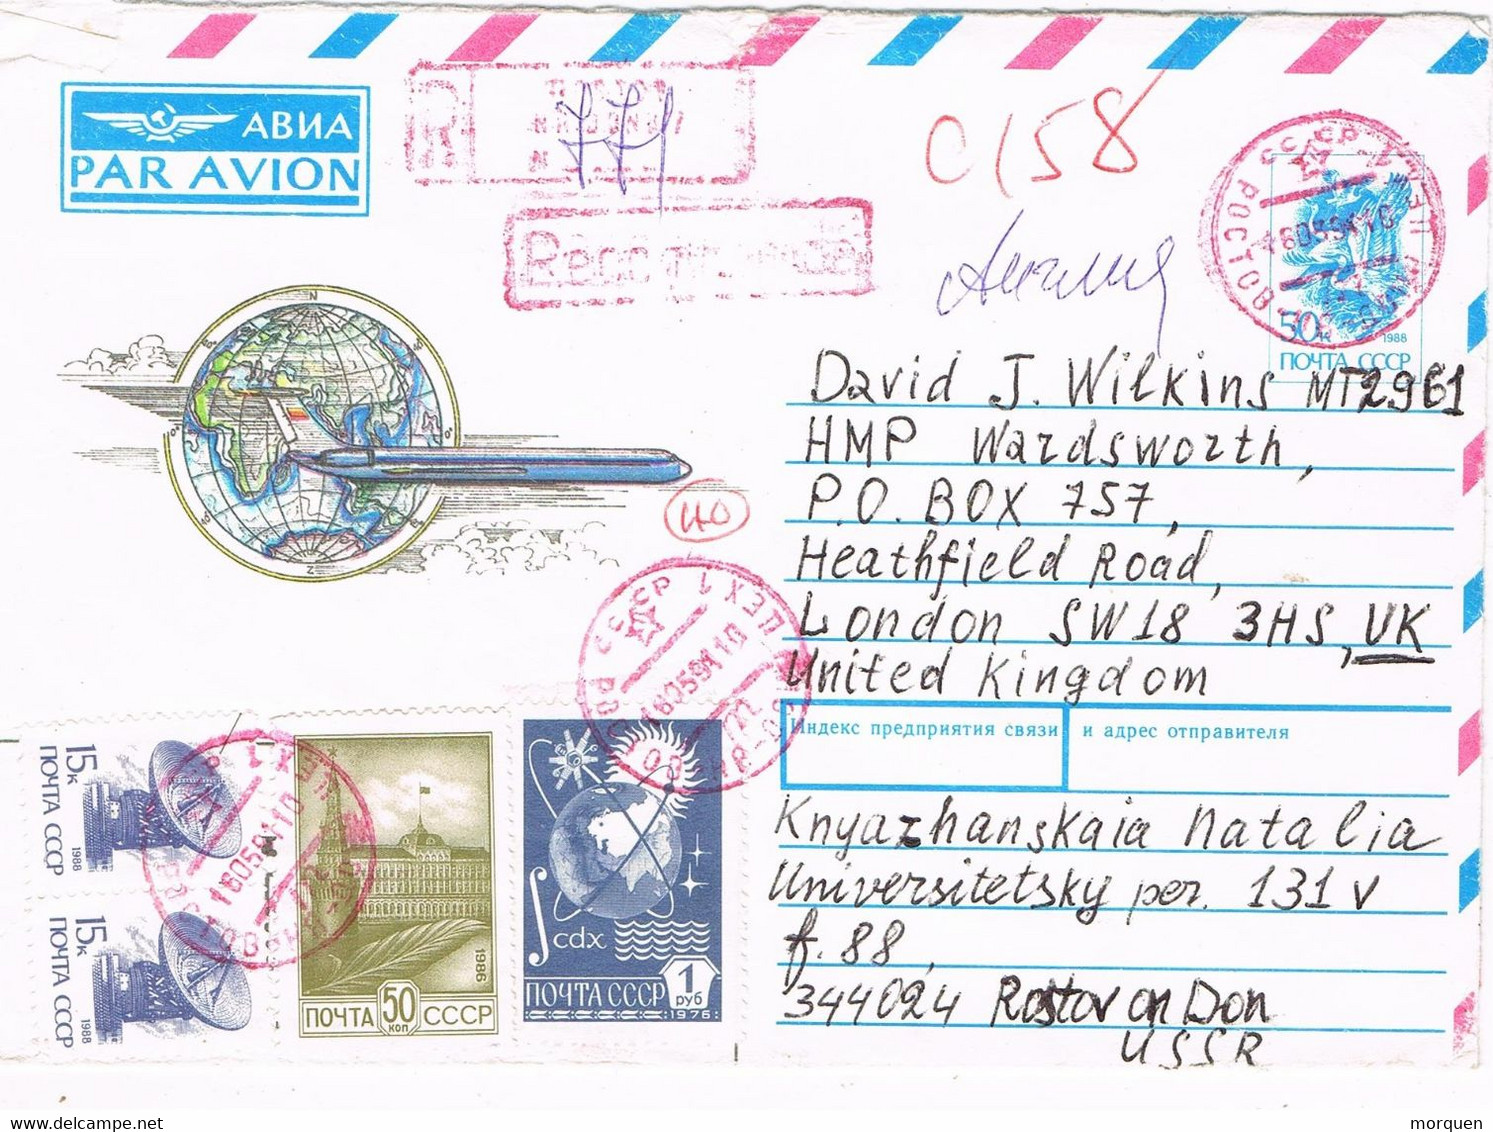 АВИА
PAR AVION
R
771
Recommande
С158
Англия
50к
1988
ПОЧТА СССР
David J. Wilkins MT2961
HMP Wardsworth,
P.O. BOX 757,
Heathfield Road,
London SW18 3HS, UK
United Kingdom
Индекс предприятия связи и адрес отправителя
Knyazhanskaia Natalia
Universitetsky per. 131 v
f. 88,
344024 Rostov on Don
USSR
N
Z
40
15к
ПОЧТА СССР
1988
15к
ПОЧТА СССР
1988
1986
ПОЧТА 50 коп СССР
∫cdx
ПОЧТА СССР 1 руб
1976
morquen